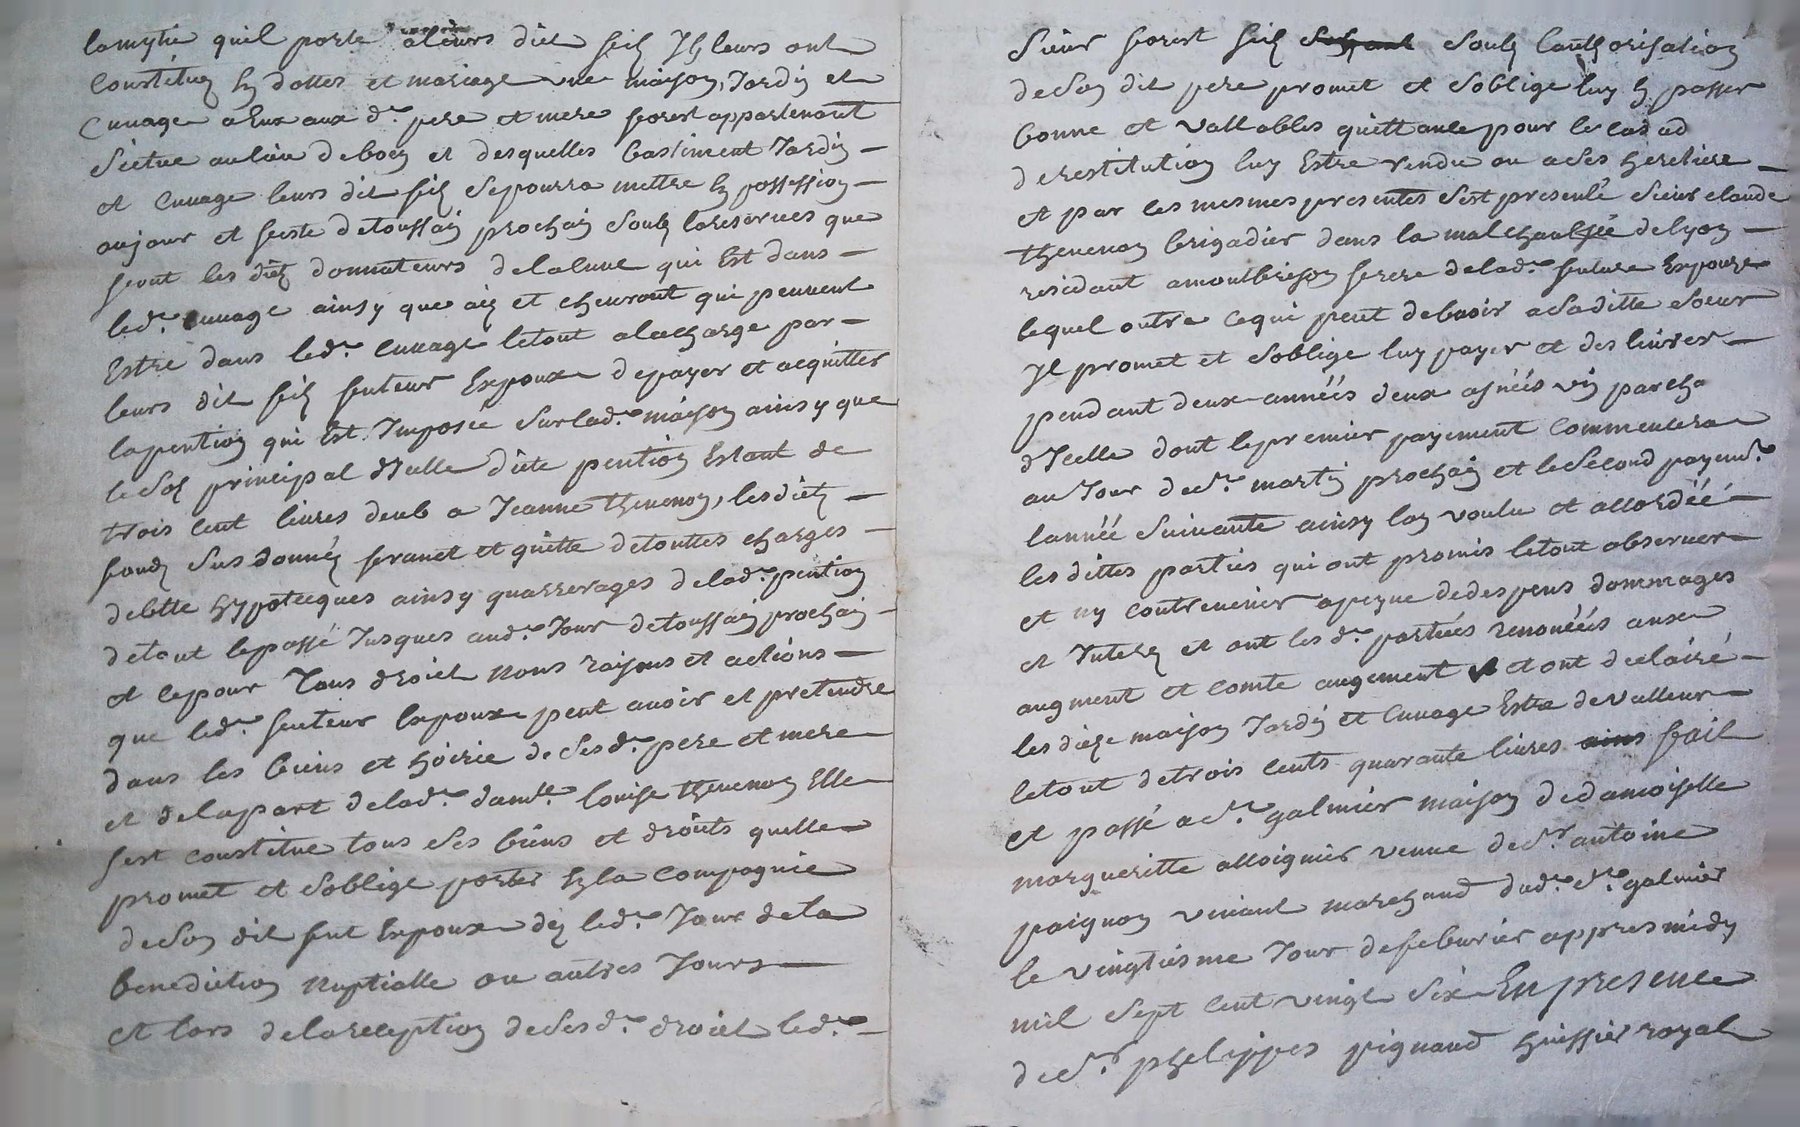 lamytie quil porte aleurs dict filz Ilz leurs ont
Constitues En dottes et mariage une maison, Jardin et
Cuuage a Eux aux d.t pere et mere forest appartenant
Scietue au lieu de boen et desquelles bastiment Jardin
et Cuuage leurs dit filz se pourra mettre En possession
au jour et feste de toussain prochain soubz la reserves que
font les dictz donnateurs de la cuue qui Est dans
led.t cuuage ainsy que aiz et cheuront qui peuuent
Estre dans led.t Cuuage le tout a la charge par
leurs dit filz futeur Expoux de payer et acquitter
la pention qui Est Imposée sur lad.te maison ainsy que
le sol principal d'Icelle dicte pention Estant de
trois cent liures deub a Jeanne theuenon, les dictz
fondz sus donnéz franct et quitte de touttes charges
debtte hypotecques ainsy quarrerages de lad.te pention
de tout le passé Jusques aud.t Jour de toussain prochain
et ce pour tous droict noms raisons et actions
que led.t futeur Expoux peut auoir et pretendre
dans les biens et hoirie de sesd.t pere et mere
et de la part de lad.te dam.lle louise theuenon Elle
sest constitue tous ses biens et droits quelle
promet et soblige porter En la compagnie
de son dit fut Expoux dez led.t Jour de la
benediction nuptialle ou autres Jours
et lors de la reception de sesd.t droict led.t
Sieur forest filz soubz lauthorisation
de son dit pere promet et soblige luy En passer
bonne et vallables quittance pour le cas ad
de restitution luy Estre rendu ou a ses heretiere
et par les mesmes presentes sest presenté sieur claude
theuenon brigadier dans la malchaussée de lyon
residant a montbrison frere de lad.te future Expouze
lequel outre ce qui peut debuoir a sa ditte soeur
Il promet et soblige luy payer et des liurer
pendant deux années deux asnéés vin par ch.a
d'Icelle dont le premier payement commencera
au Jour de st martin prochain et le second payem.t
lannéé suiuante ainsy lon voulu et accordéé
les dittes parties qui ont promis le tout obseruer
et ny contreuenier a peyne de despens dommages
et Interez et ont les d.t partiés renoncéés aux
augment et contre augement et ont declairé
les dicte maison Jardin et Cuuage Estre de valleur
le tout de trois cents quarante liures fait
et passé a st galmier maison de damoiselle
margueritte alloignier veuue de sr antoine
paignon viuant marchand dud.t st galmier
le vingtiesme Jour de feburier appres midy
mil sept cent vingt six En presence
de sr phelippes pignaud huissier royal